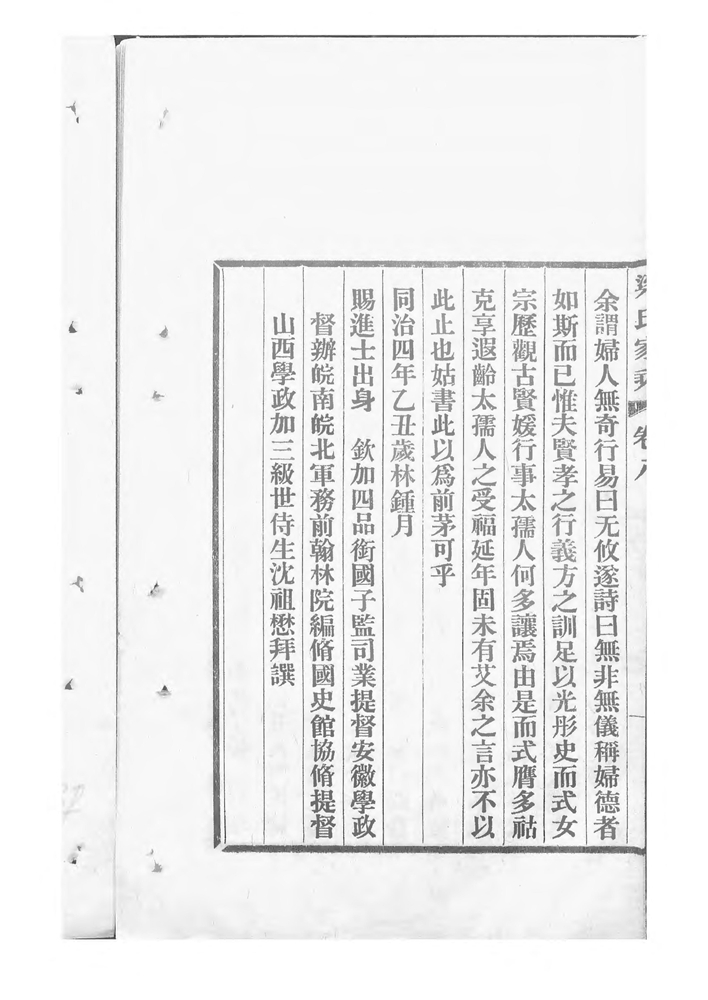 氏家乘 卷八
余謂婦人無奇行易曰无攸遂詩曰無非無儀稱婦德者
如斯而已惟夫賢孝之行義方之訓足以光彤史而式女
宗歷觀古賢媛行事太孺人何多讓焉由是而式膺多祜
克享遐齡太孺人之受福延年固未有艾余之言亦不以
此止也姑書此以爲前茅可乎
同治四年乙丑歲林鍾月
賜進士出身 欽加四品銜國子監司業提督安徽學政
督辦皖南皖北軍務前翰林院編脩國史館協脩提督
山西學政加三級世侍生沈祖懋拜譔